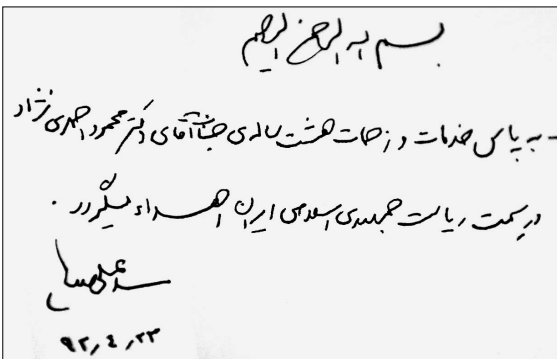 بسم الله الرحمن الرحیم
- به پاس خدمات و زحمات هشت ساله‌ی جناب آقای دکتر محمود احمدی نژاد
در سمت ریاست جمهوری اسلامی ایران اهداء میگردد .
سید علی
۹۲,۴,۲۳